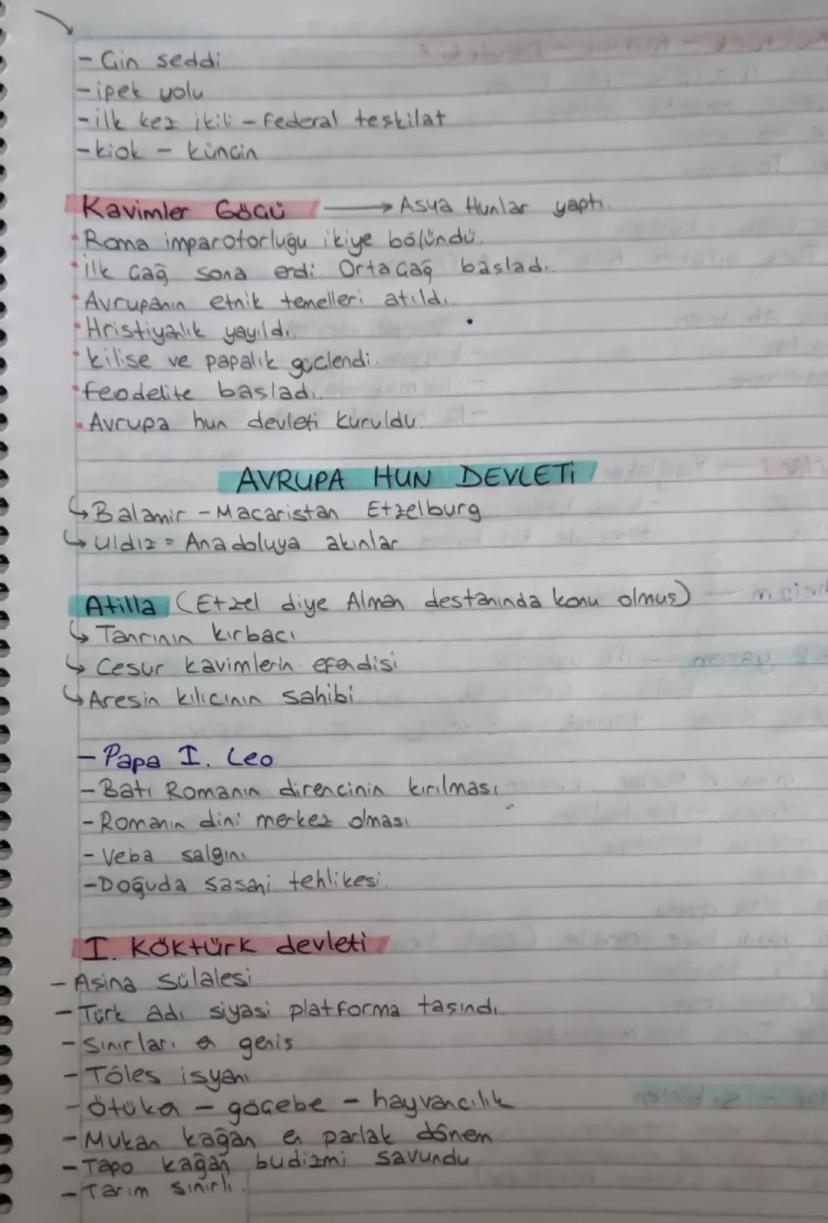 - Çin seddi
- ipek yolu
- ilk kez ikili - federal teskilat
- kiok - küncin
Kavimler Göçü → Asya Hunlar yaptı.
• Roma imparotorluğu ikiye bölündü.
• ilk Çağ sona erdi Orta Çağ başladı.
• Avrupanın etnik temelleri atıldı.
• Hristiyanlık yayıldı.
• kilise ve papalık güçlendi.
• feodelite başladı.
• Avrupa hun devleti kuruldu.
AVRUPA HUN DEVLETİ
↳ Balamir - Macaristan Etzelburg
↳ Uldız = Anadoluya akınlar
Atilla (Etzel diye Alman destanında konu olmuş)
↳ Tanrının kırbacı
↳ Cesur kavimlerin efendisi
↳ Aresin kılıcının sahibi
- Papa I. Leo
- Batı Romanın direncinin kırılması
- Romanın dini merkez olması
- Veba salgını
- Doğuda sasani tehlikesi.
I. Köktürk devleti
- Aşina sülalesi
- Türk adı siyasi platforma taşındı.
- Sınırları en geniş
- Töles isyanı
- Ötüken - göçebe - hayvancılık
- Mukan kağan en parlak dönem
- Tapo kağan budizmi savundu
- Tarım sınırlı.